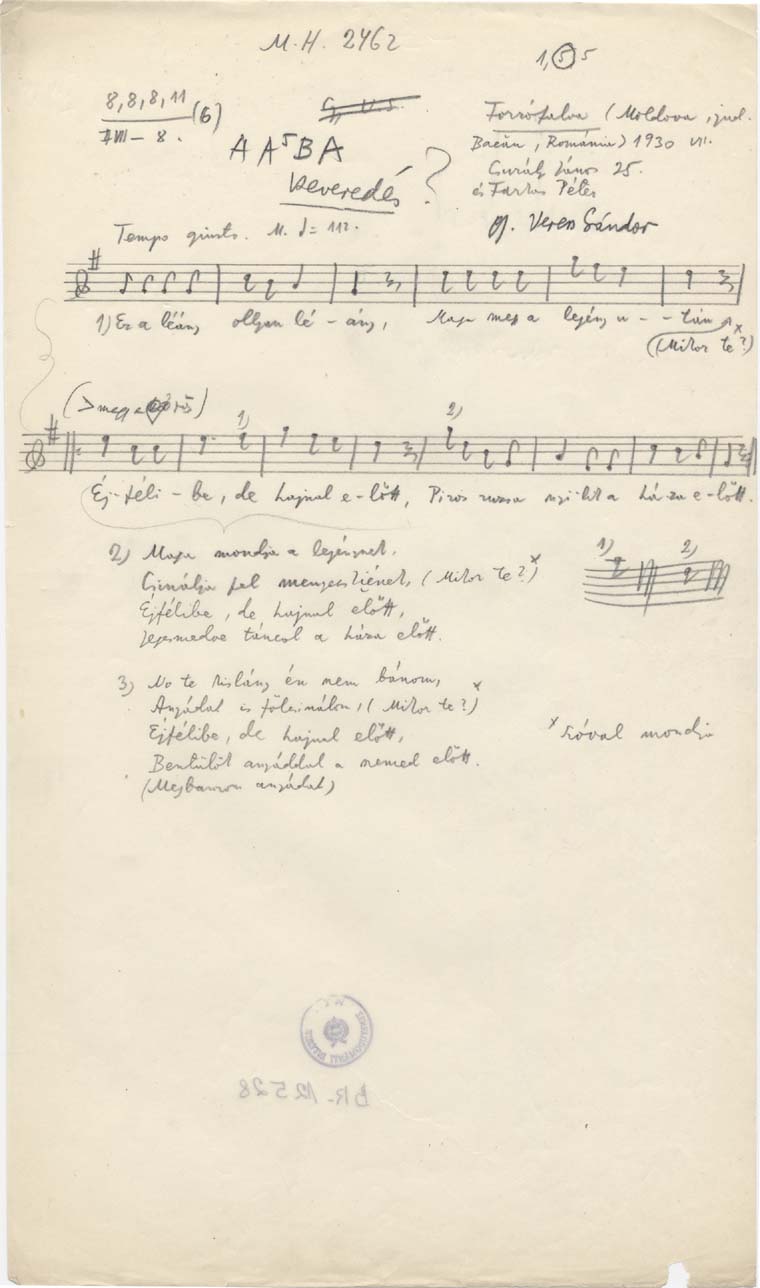 M.H. 2462
1, 5 5
8, 8, 8, 11 (6)
VIII – 8.
A A⁵ B A
keveredés ?
Forrófalva (Moldova, jud.
Bacău, Románia) 1930 VII.
János 25.
és Farkas Péter
gy. Veress Sándor
Tempo giusto. M. = 112.
1) Ez a léány ollyan lé - ány, Maga meg a legény u - - tán
(Mikor te?) x
1) 2)
Éj-féli - be, de hajnal e - lőtt, Piros ruzsa nyi-lik a há-za e-lőtt.
2) Maga mondja a legénynek,
Csinálja fel menyecskének, (Mikor te?) x
Éjfélibe, de hajnal előtt,
jegesmedve táncol a háza előtt.
1) 2)
3) No te kislány én nem bánom,
Anyádat is fölcsinálom, (Mikor te?) x
Éjfélibe, de hajnal előtt,
anyáddal a szemed előtt.
anyádat)
x szóval mondja
BR-12528